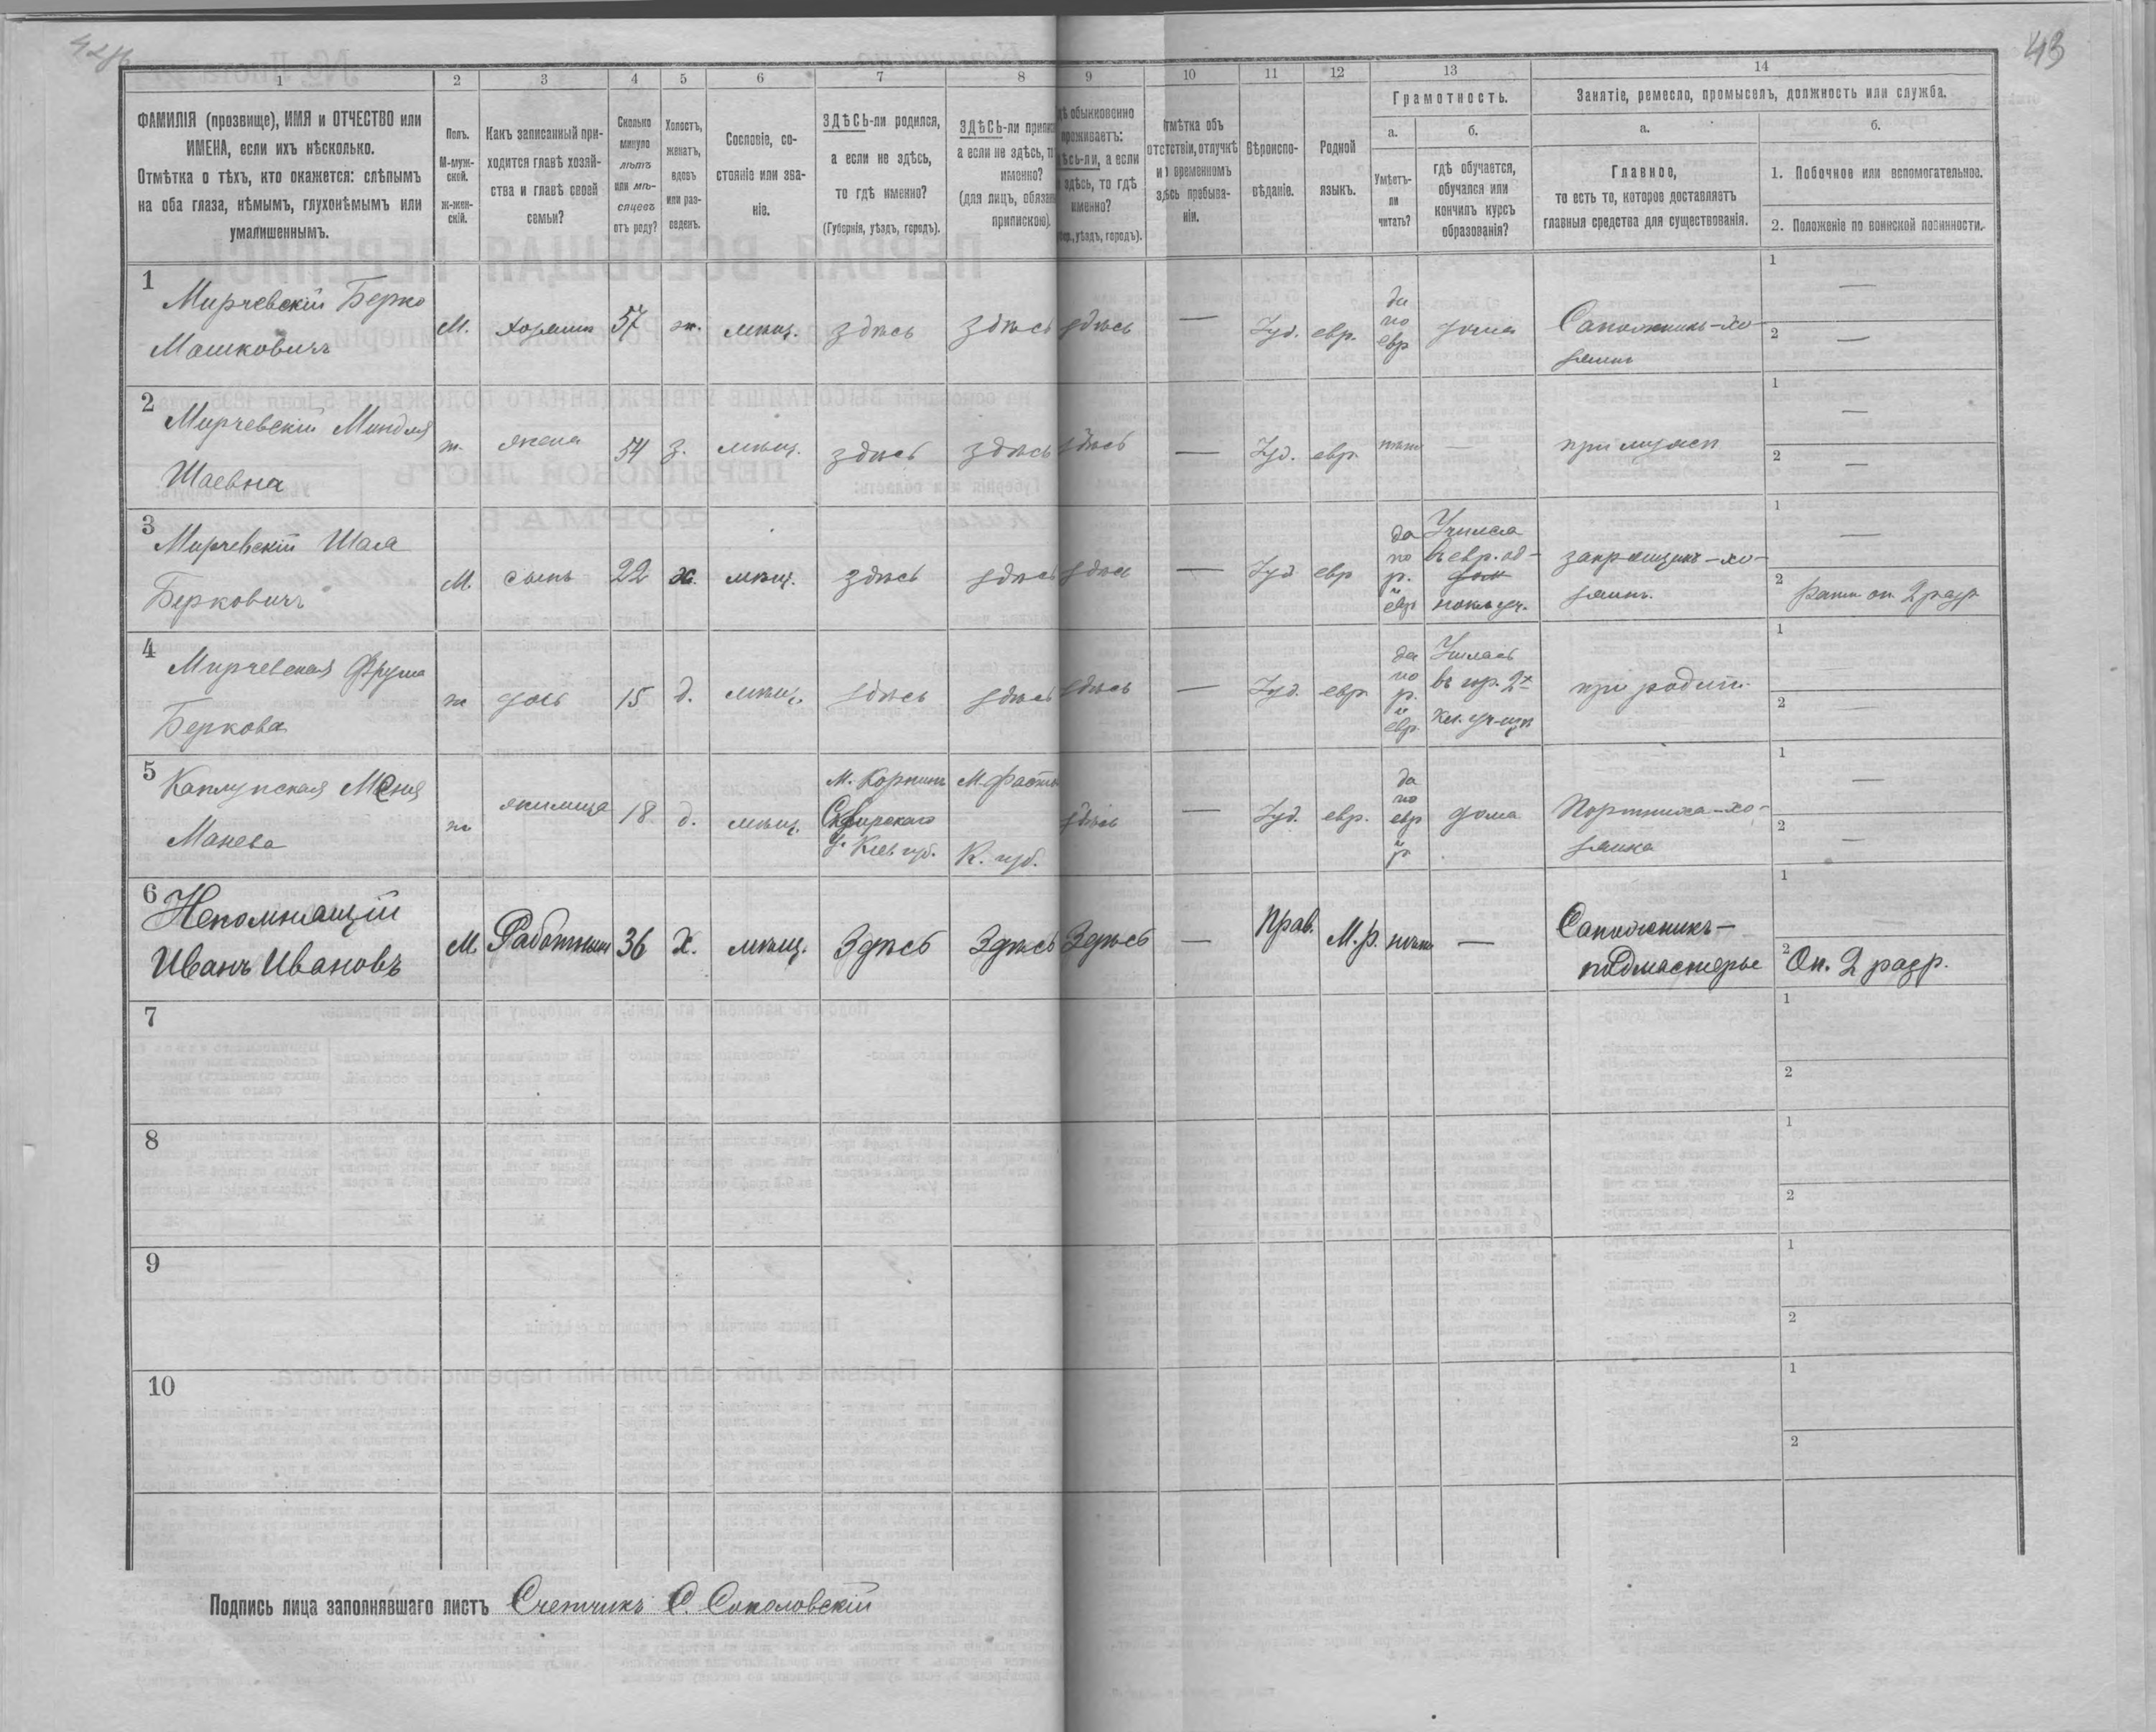 43
1 2 3 4 5 6 7 8 9 10 11 12 13 14
ФАМИЛІЯ (прозвище), ИМЯ и ОТЧЕСТВО или
ИМЕНА, если ихъ нѣсколько.
Отмѣтка о тѣхъ, кто окажется: слѣпымъ
на оба глаза, нѣмымъ, глухонѣмымъ или
умалишеннымъ.
Полъ.
М-муж-
ской.
ж-жен-
скій.
Какъ записанный при-
ходится главѣ хозяй-
ства и главѣ своей
семьи?
Сколько
минуло
лѣтъ
или мѣ-
сяцевъ
отъ роду?
Холостъ,
женатъ,
вдовъ
или раз-
веденъ.
Сословіе, со-
стояніе или зва-
ніе.
ЗДѢСЬ-ли родился,
а если не здѣсь,
то гдѣ именно?
(Губернія, уѣздъ, городъ).
ЗДѢСЬ-ли
а если не здѣсь,
именно?
(для лицъ,
припискою).
обыкновенно
проживаетъ:
а если
здѣсь, то гдѣ
именно?
уѣздъ, городъ).
Отмѣтка объ
отсутствіи, отлучкѣ
и о временномъ
здѣсь пребыва-
ніи.
Вѣроиспо-
вѣданіе.
Родной
языкъ.
Грамотность.
а.
Умѣетъ-
ли
читать?
б.
гдѣ обучается,
обучался или
кончилъ курсъ
образованія?
Занятіе, ремесло, промыселъ, должность или служба.
а.
Главное,
то есть то, которое доставляетъ
главныя средства для существованія.
б.
1. Побочное или вспомогательное.
2. Положеніе по воинской повинности.
1
Мирчевскій Берко
Мошковичъ
М. хозяинъ 57 ж. мѣщ. здѣсь здѣсь здѣсь — Іуд. евр.
да
по
евр
дома
Сапожникъ-хо-
зяинъ
1 —
2 —
2
Мирчевскій Миндля
Шаевна
ж. жена 54 з. мѣщ. здѣсь здѣсь здѣсь — Іуд. евр. нѣтъ —
при мужѣ
1 —
2 —
3
Мирчевскій Шая
Берковичъ
М. сынъ 22 х. мѣщ. здѣсь здѣсь здѣсь — Іуд евр
да
по
р.
и
евр
Учился
въ евр. од-
закройщикъ-хо-
зяинъ.
1 —
2 оп. 2 разр
4
Мирчевская Фрума
Беркова
ж дочь 15 д. мѣщ. здѣсь здѣсь здѣсь — Іуд. евр.
да
по
р.
и
евр.
Училась
въ гор. 2х
кл. уч-щѣ
при родит.
1
2 —
5
Каплунская Меня
Манева
ж. жилица 18 д. мѣщ.
М. Корнинъ
Сквирскаго
у. Кіев губ.
М. Фаст
К. губ.
здѣсь — Іуд. евр.
да
по
евр
и
р
дома
Портниха-хо-
зяйка
1 —
2 —
6
Непомнящій
Иванъ Ивановъ
М. Работникъ 36 Х. мѣщ. Здѣсь Здѣсь Здѣсь — Прав. М.р. нѣтъ —
Сапожникъ-
подмастерье
1 —
2 Оп. 2 разр.
7
1
2
8
1
2
9
1
2
10
1
2
Подпись лица заполнявшаго листъ Счетчикъ С. Соколовскій